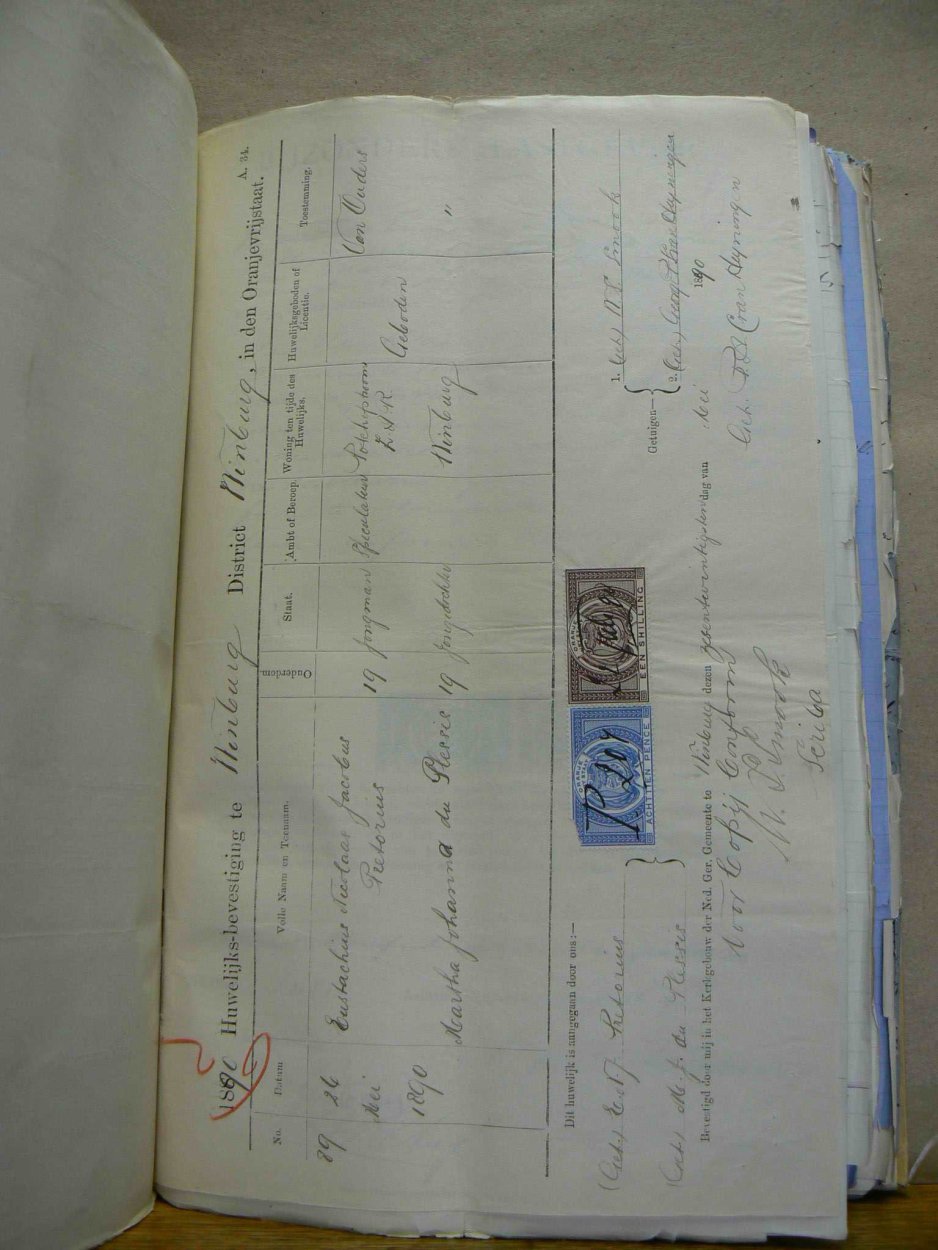 A. 34.
1890 Huwelijks-bevestiging te Winburg District Winburg, in den Oranjevrijstaat.
No. Datum Volle Naam en Toenaam. Ouderdom Staat. Ambt of Beroep Woning ten tijde des Huwelijks. Huwelijksgeboden of Licentie. Toestemming.
89 26 Eustachius Nicolaas Jacobus 19 Jongman Speculateur Potchefstroom Van Ouders
Mei Pretorius Z A R Geboden
1890 Martha Johanna du Plessis 19 Jongedochter Winburg "
Dit huwelijk is aangegaan door ons:—
(Get) E. N. J. Pretorius
(Get) M. J. du Plessis
ORANJE
ACHTTIEN PENCE
ORANJE
EEN SHILLING
Getuigen—
1. (Get)
2. (Get)
Bevestigd door mij in het Kerkgebouw der Ned. Ger. Gemeente te Winburg dezen zesentwintigsten dag van Mei 1890
Get. van Heyningen
Voor Copij Conform
Scriba